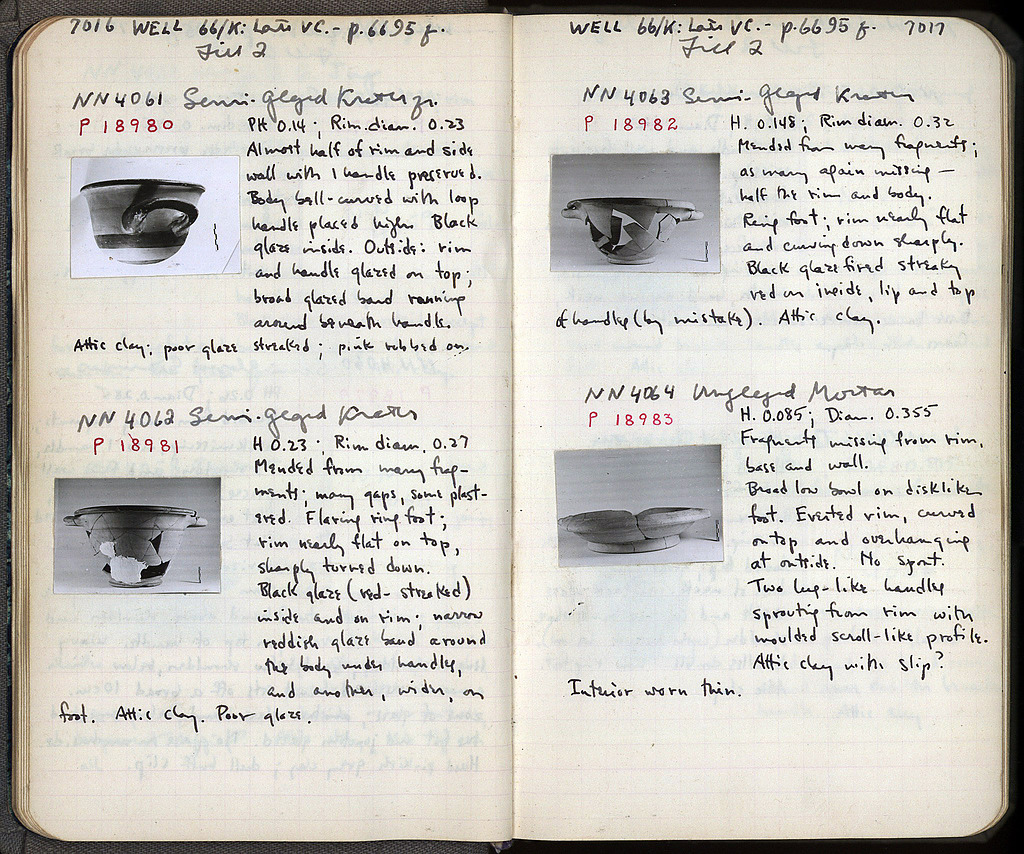 7016 WELL 66/K: Late VC. - p.6695 f.
Fill 2
NN 4061 Semi-glazed Krater fr.
P 18980
PH 0.14; Rim diam. 0.23
Almost half of rim and side
wall with 1 handle preserved.
Body bell-curved with loop
handle placed high. Black
glaze inside. Outside: rim
and handle glazed on top;
broad glazed band running
around beneath handle.
Attic clay; poor glaze streaked; pink rubbed on.
NN 4062 Semi-glazed Krater
P 18981
H 0.23; Rim diam. 0.27
Mended from many frag-
ments; many gaps, some plast-
ered. Flaring ring foot;
rim nearly flat on top,
sharply turned down.
Black glaze (red-streaked)
inside and on rim; narrow
reddish glaze band around
the body under handles,
and another, wider, on
foot. Attic clay. Poor glaze.
WELL 66/K: Late VC. - p.6695 f. 7017
Fill 2
NN 4063 Semi-Glazed Krater
P 18982
H. 0.148; Rim diam. 0.32
Mended from many fragments;
as many again missing —
half the rim and body.
Ring foot; rim nearly flat
and curving down sharply.
Black glaze fired streaky
red on inside, lip and top
of handles (by mistake). Attic clay.
NN 4064 Unglazed Mortar
P 18983
H. 0.085; Diam. 0.355
Fragments missing from rim,
base and wall.
Broad low bowl on disklike
foot. Everted rim, curved
on top and overhanging
at outside. No spout.
Two lug-like handles
sprouting from rim with
moulded scroll-like profile.
Attic clay with slip?
Interior worn thin.